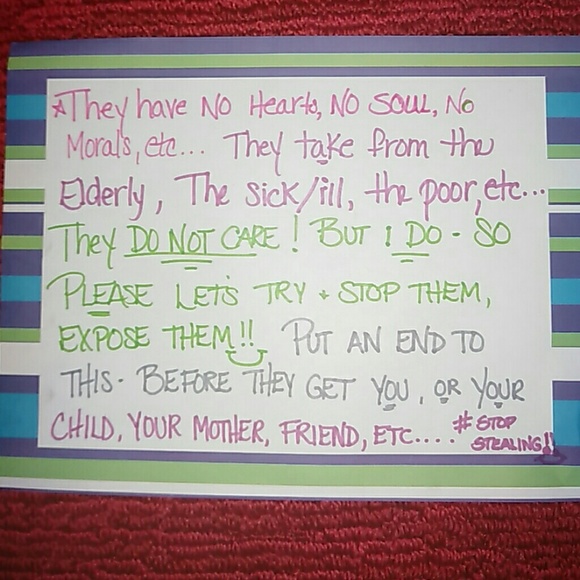 ☆They have NO Hearts, NO SOUL, No
Morals, etc... They take from the
Elderly, The sick/ill, the poor, etc...
They DO NOT CARE! BUT I DO - SO
PLEASE LET'S TRY + STOP THEM,
EXPOSE THEM!! PUT AN END TO
THIS - BEFORE THEY GET YOU, OR YOUR
CHILD, YOUR MOTHER, FRIEND, ETC.... # STOP
STEALING!!